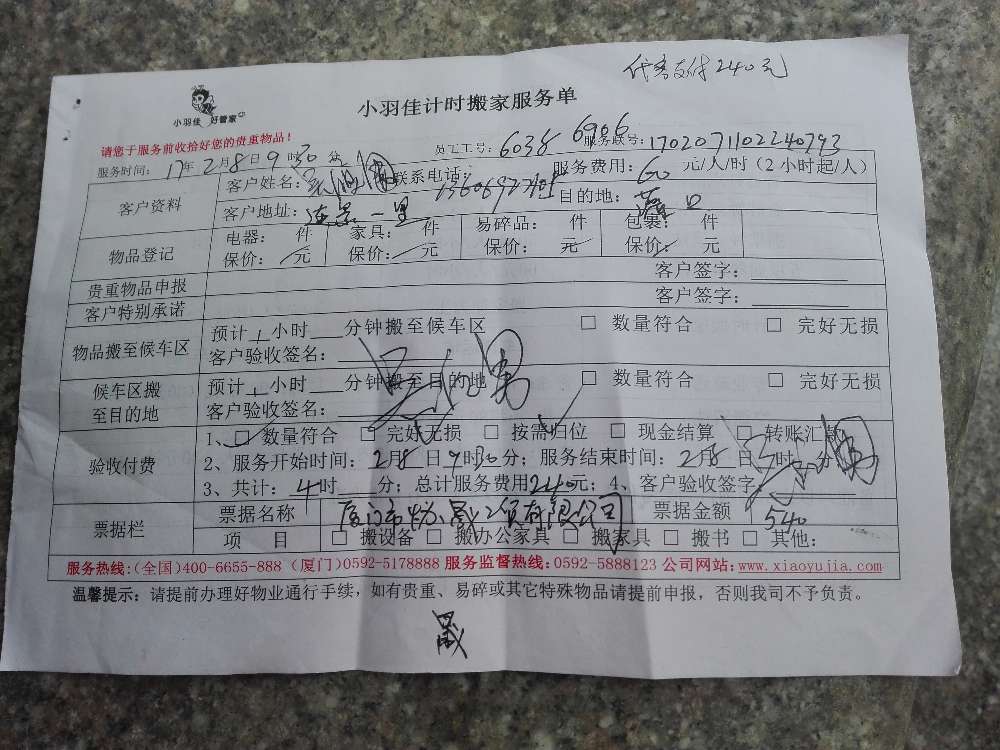 代客支付240元
小羽佳 好管家
小羽佳计时搬家服务单
请您于服务前收拾好您的贵重物品！
员工工号：6038 6906 服务账号：1702071102240793
服务时间：17年2月8日9时30分
客户资料 客户姓名： 联系电话： 服务费用：60元/人/时（2小时起/人）
客户地址：莲景一里 目的地：
物品登记 电器： 件 家具： 件 易碎品： 件 包裹： 件
保价： 元 保价： 元 保价： 元 保价： 元
贵重物品申报 客户签字：
客户特别承诺 客户签字：
物品搬至候车区 预计 小时 分钟搬至候车区 □ 数量符合 □ 完好无损
客户验收签名：
候车区搬至目的地 预计 小时 分钟搬至目的地 □ 数量符合 □ 完好无损
客户验收签名：
验收付费 1、□ 数量符合 □ 完好无损 □ 按需归位 □ 现金结算 □ 转账汇款
2、服务开始时间：2月8日9时30分；服务结束时间：2月8日 时 分
3、共计：4时 分；总计服务费用240元；4、客户验收签字
票据栏 票据名称 厦门市 晟工贸有限公司 票据金额 540
项 目 □ 搬设备 □ 搬办公家具 □ 搬家具 □ 搬书 □ 其他：
服务热线：(全国)400-6655-888（厦门)0592-5178888 服务监督热线：0592-5888123 公司网站：www.xiaoyujia.com
温馨提示：请提前办理好物业通行手续，如有贵重、易碎或其它特殊物品请提前申报，否则我司不予负责。
晟